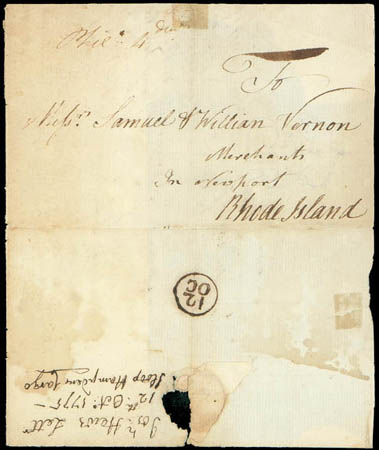 Phila 4 dwt
To
Messrs. Samuel & William Vernon
Merchants
In Newport
Rhode Island
12
OC
Letter
12th Octr. 1775 –
Sloop Hampden Cargo